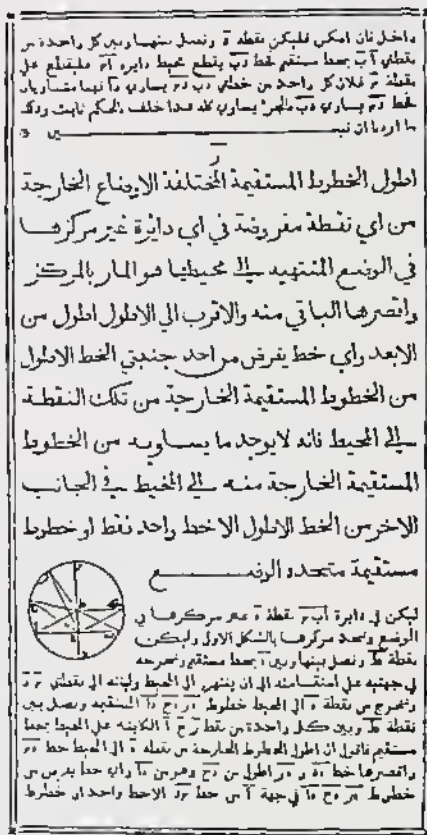 داخل فان امكن فليكن نقطه ة ونصل بينها وبين كل واحدة من
نقطتي آ ب بخط مستقيم فخط ةب يقطع محيط دايره
نقطة فلان كل واحد من خطي ةب يساوي ةا فهما متساويان
فخط يساوي ةب فالجزء يساوي كله هذا خلف فالحكم ثابت وذلك
ما اردنا ان نبين
ز
اطول الخطوط المستقيمة المختلفة الاوضاع الخارجة
من اي نقطة مفروضة في اي دايرة غير مركزها
في الوضع المنتهيه الي محيطها هو المار بالمركز
واقصرها الباقي منه والاقرب الي الاطول اطول من
الابعد واي خط يفرض من احد جنبتي الخط الاطول
من الخطوط المستقيمة الخارجة من تلك النقطة
الي المحيط فانه لا يوجد ما يساويه من الخطوط
المستقيمة الخارجة منه الي المحيط في الجانب
الاخر من الخط الاطول الا خط واحد فقط او خطوط
مستقيمة متحدد الوضع
ليكن في دايرة نقطة ة غير مركزها في
الوضع ونحدد مركزها بالشكل الاول وليكن
نقطة ط ونصل بينها وبين ة بخط مستقيم ونخرجه
في جهتيه علي استقامته الي ان ينتهي الي المحيط وليلقه الي نقطتي
ونخرج من نقطة ة الي المحيط خطوط المستقيمه ونصل بين
نقطة ط وبين كل واحدة من نقط ز ح آ الكاينه علي المحيط بخط
مستقيم فاقول ان اطول الخطوط الخارجة من نقطه ة الي المحيط خط
واقصرها خط و اطول من ةح وهو من ةآ واي خط يفرض من
خطوط في جهة آ من خط الا خط واحد او خطوط